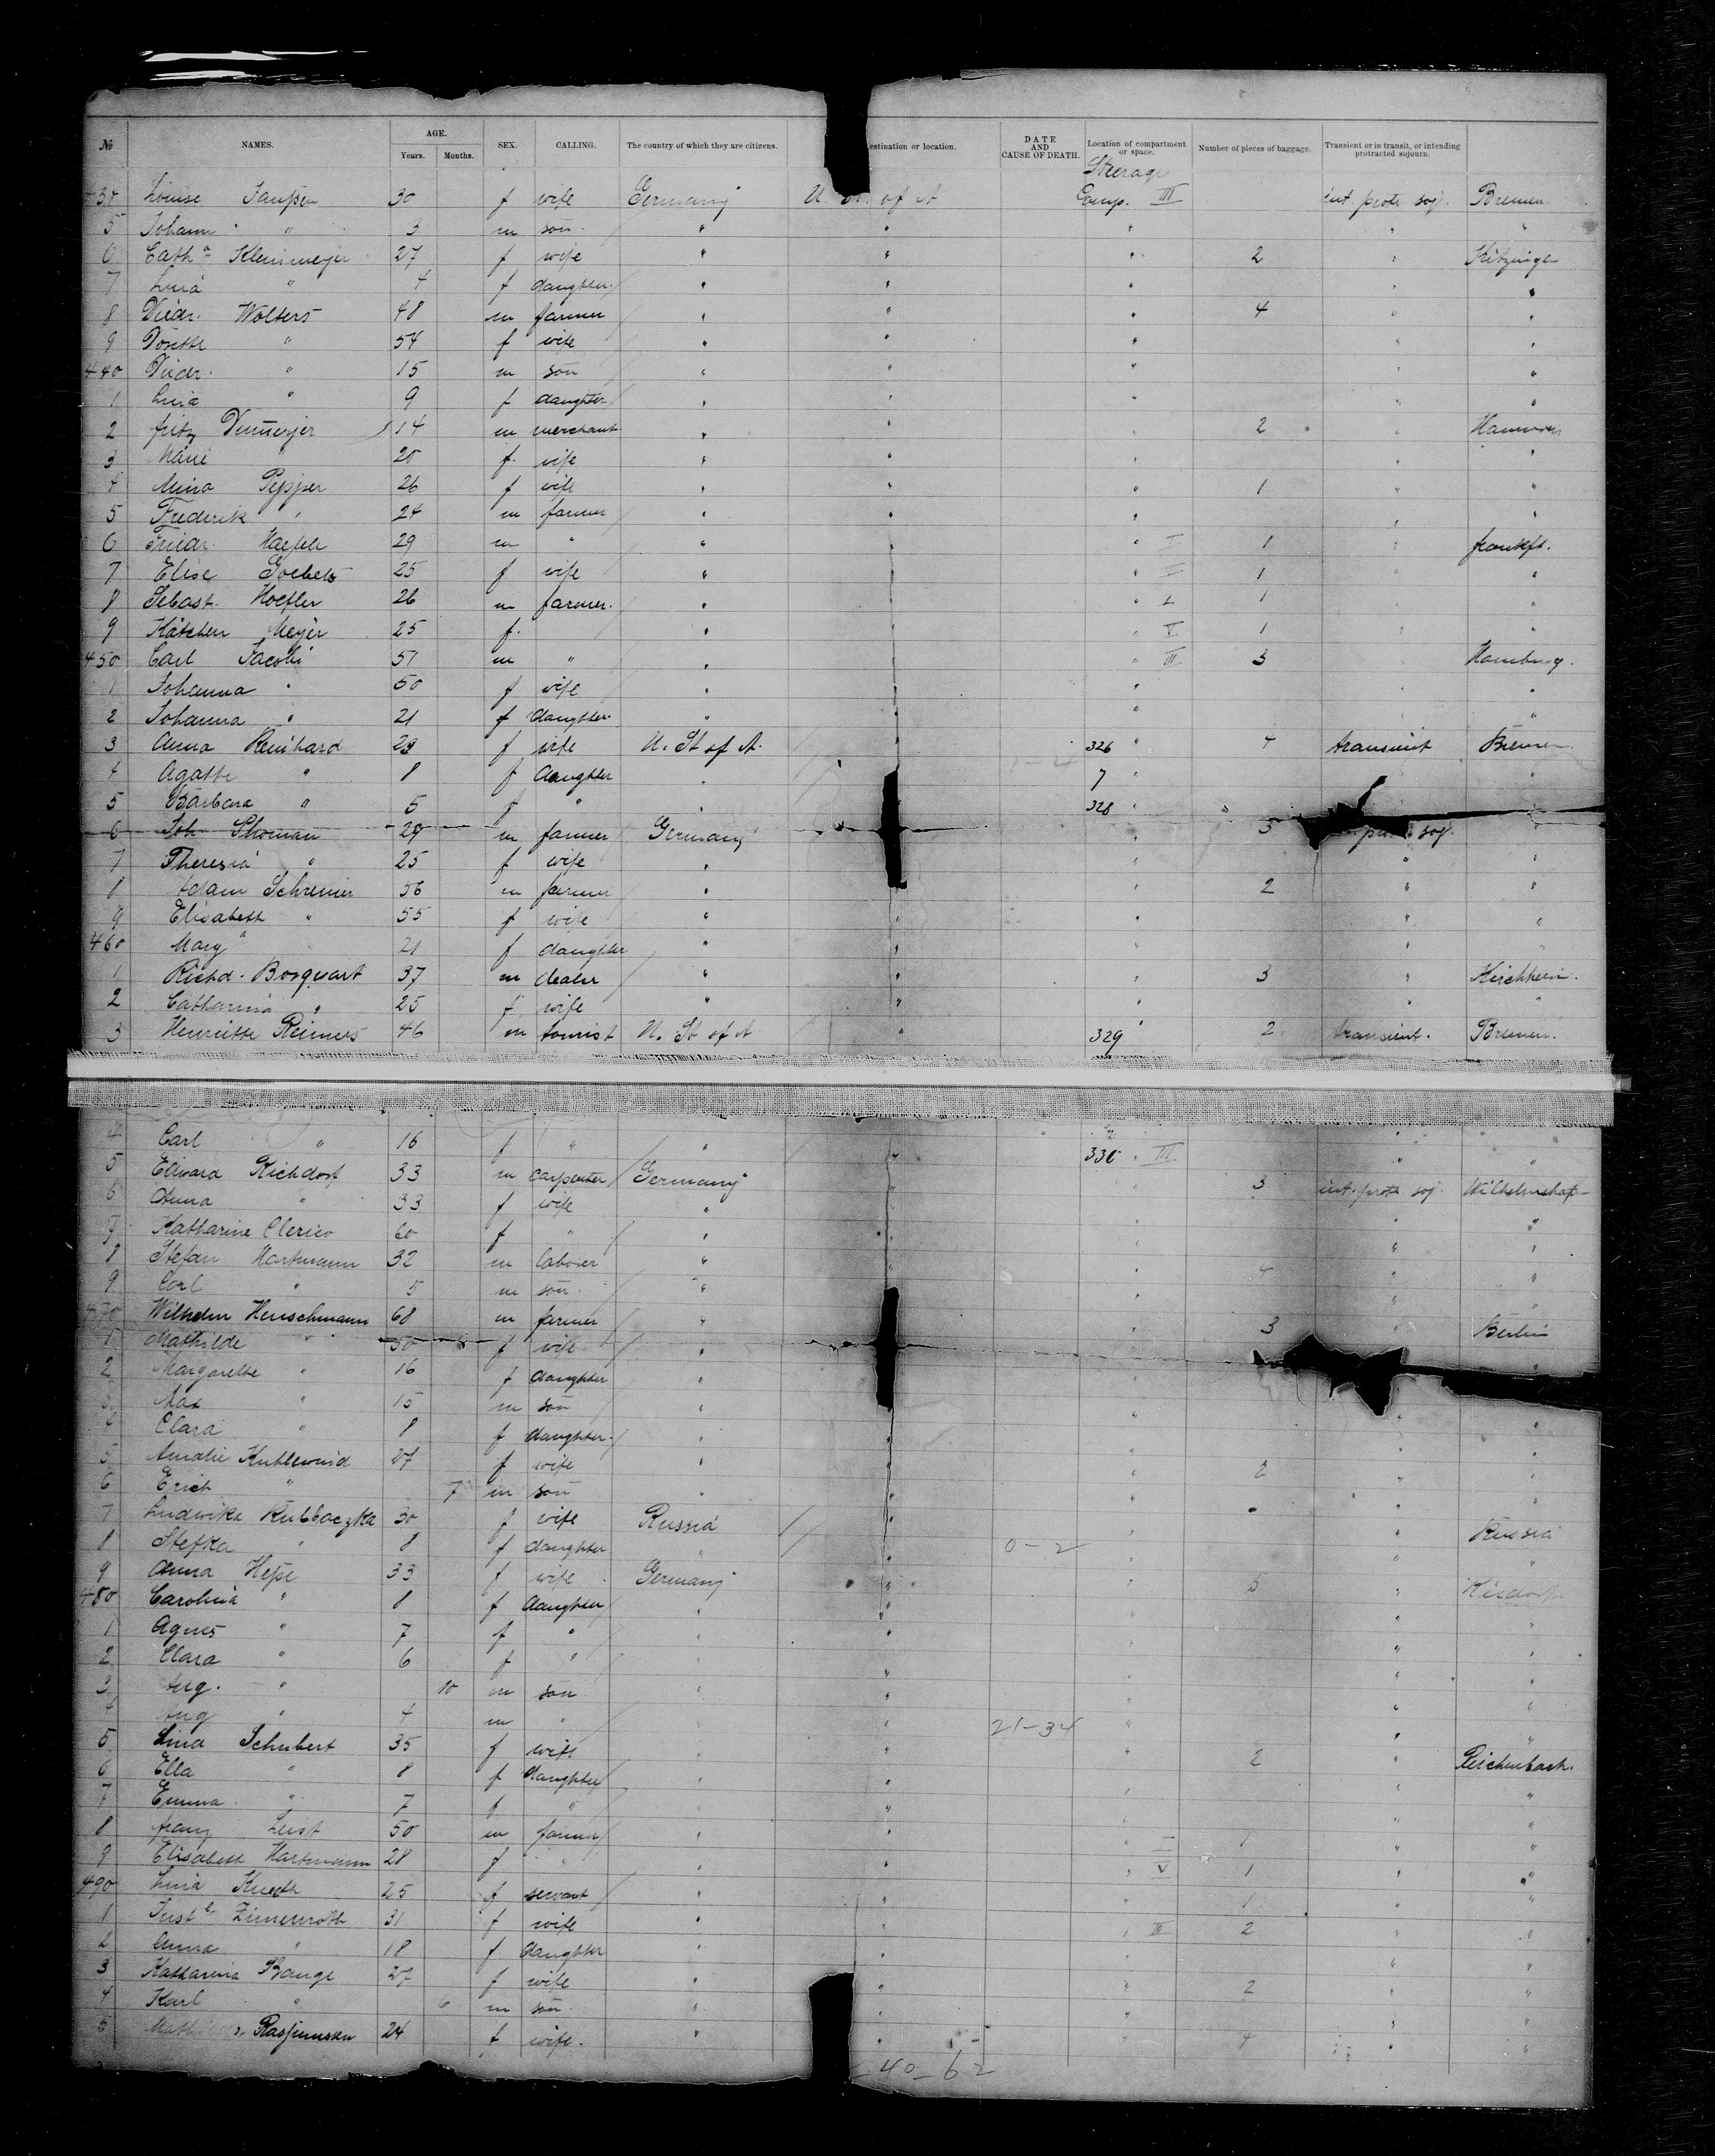 № NAMES. AGE. Years. Months. SEX. CALLING. The country of which they are citizens. estination or location. DATE AND CAUSE OF DEATH. Location of compartment or space. Number of pieces of baggage. Transient or in transit, or intending protracted sojourn.
Steerage
Louise 30 f wife Germany U. of A Comp. III int. protr. soj. Bremen
5 Johann " 3 m son " " " " "
6 Cath a Kleinmeyer 27 f wife " " " 2 "
7 Lina " 4 f daughter " " " " "
8 Diedr. Wolters 48 m farmer " " " 4 " "
9 Dorette " 54 f wife " " " " "
440 Diedr. " 15 m son " " " " "
1 Lina " 9 f daughter " " " " "
2 Fritz 14 m merchant " " 2 "
3 Marie 20 f. wife " " " " "
4 Mina Pepper 26 f wife " " " 1 " "
5 Frederik " 24 m farmer " " " " "
6 Friedr. 29 m " " " I 1 " frankft.
7 Elise Goebels 25 f wife " " " 1 "
8 Sebast. Hoefler 26 m farmer. " " " 1 "
9 Kätchen Meyer 25 f. " " " V 1 " "
450 Carl Jacobi 51 m " " " " III 3 Hamburg.
1 Johanna " 50 f wife " " " " "
2 Johanna " 21 f daughter " " " "
3 Anna Reinhard 29 f wife U. St of A. 326 " 4 transient Bremen
4 Agathe " 8 f daughter " 7 " "
5 Barbara " 5 f " " 328 " "
6 Joh. Shoman 29 m farmer Germany " 3 soj. "
7 Theresia " 25 f wife " " " "
8 Adam Schreiner 56 m farmer " " 2 " "
9 Elisabeth " 55 f wife " " " " "
460 Mary " 21 f daughter " " " " "
1 Richd. Bosquart 37 m dealer " " " 3 " Kirchheim.
2 Catharina " 25 f wife " " " " "
3 Henriette Reimers 46 m tourist U. St of A " 329 " 2 transient. Bremen.
4 Carl " 16 f " " " 330 " III " "
5 Edward Richdorf 33 m carpenter Germany " " 3 int. protr. soj.
6 Anna " 33 f wife " " " " "
7 Katharine Clerico 60 f " " " " " "
8 Stefan Hartmann 32 m laborer " " " 4 " "
9 Carl " 5 m son " " " "
470 Wilhelm Henschmann 68 m farmer " " 3 " Berlin
1 Mathilde " 50 f wife " "
2 Margarethe " 16 f daughter " " "
3 Max " 15 m son " " " "
4 Clara " 8 f daughter " " " " "
5 Amalie Kuhlewind 27 f wife " " " 2 " "
6 Erich " 7 m son " " " " "
7 Ludwika 30 f wife Russia " " " Russia
8 Stefka " 8 f daughter " " 0-2 " " "
9 Anna Hesse 33 f wife Germany " " 5 "
480 Carolina " 8 f daughter " " " "
1 Agnes " 7 f " " " " " "
2 Clara " 6 f " " " " " "
3 Aug. " 10 m son " " " " "
4 Aug " 4 m " " " 21-34 " " "
5 Lina Schubert 35 f wife " " " 2 " Reichenbach.
6 Ella " 8 f daughter " " " " "
7 Emma " 7 f " " " " " "
8 Franz Leist 50 m farmer " " " I 1 " "
9 Elisabeth Hartmann 28 f " " " " V 1 " "
490 Lina 25 f servant " " " 1 " "
1 31 f wife " " " III 2 " "
2 Anna " 18 f daughter " " " " "
3 Katharina Bange 27 f wife " " " 2 " "
4 Karl " 6 m son " " " " "
5 Rasmussen 24 f wife. " " " 4 " "
40-62